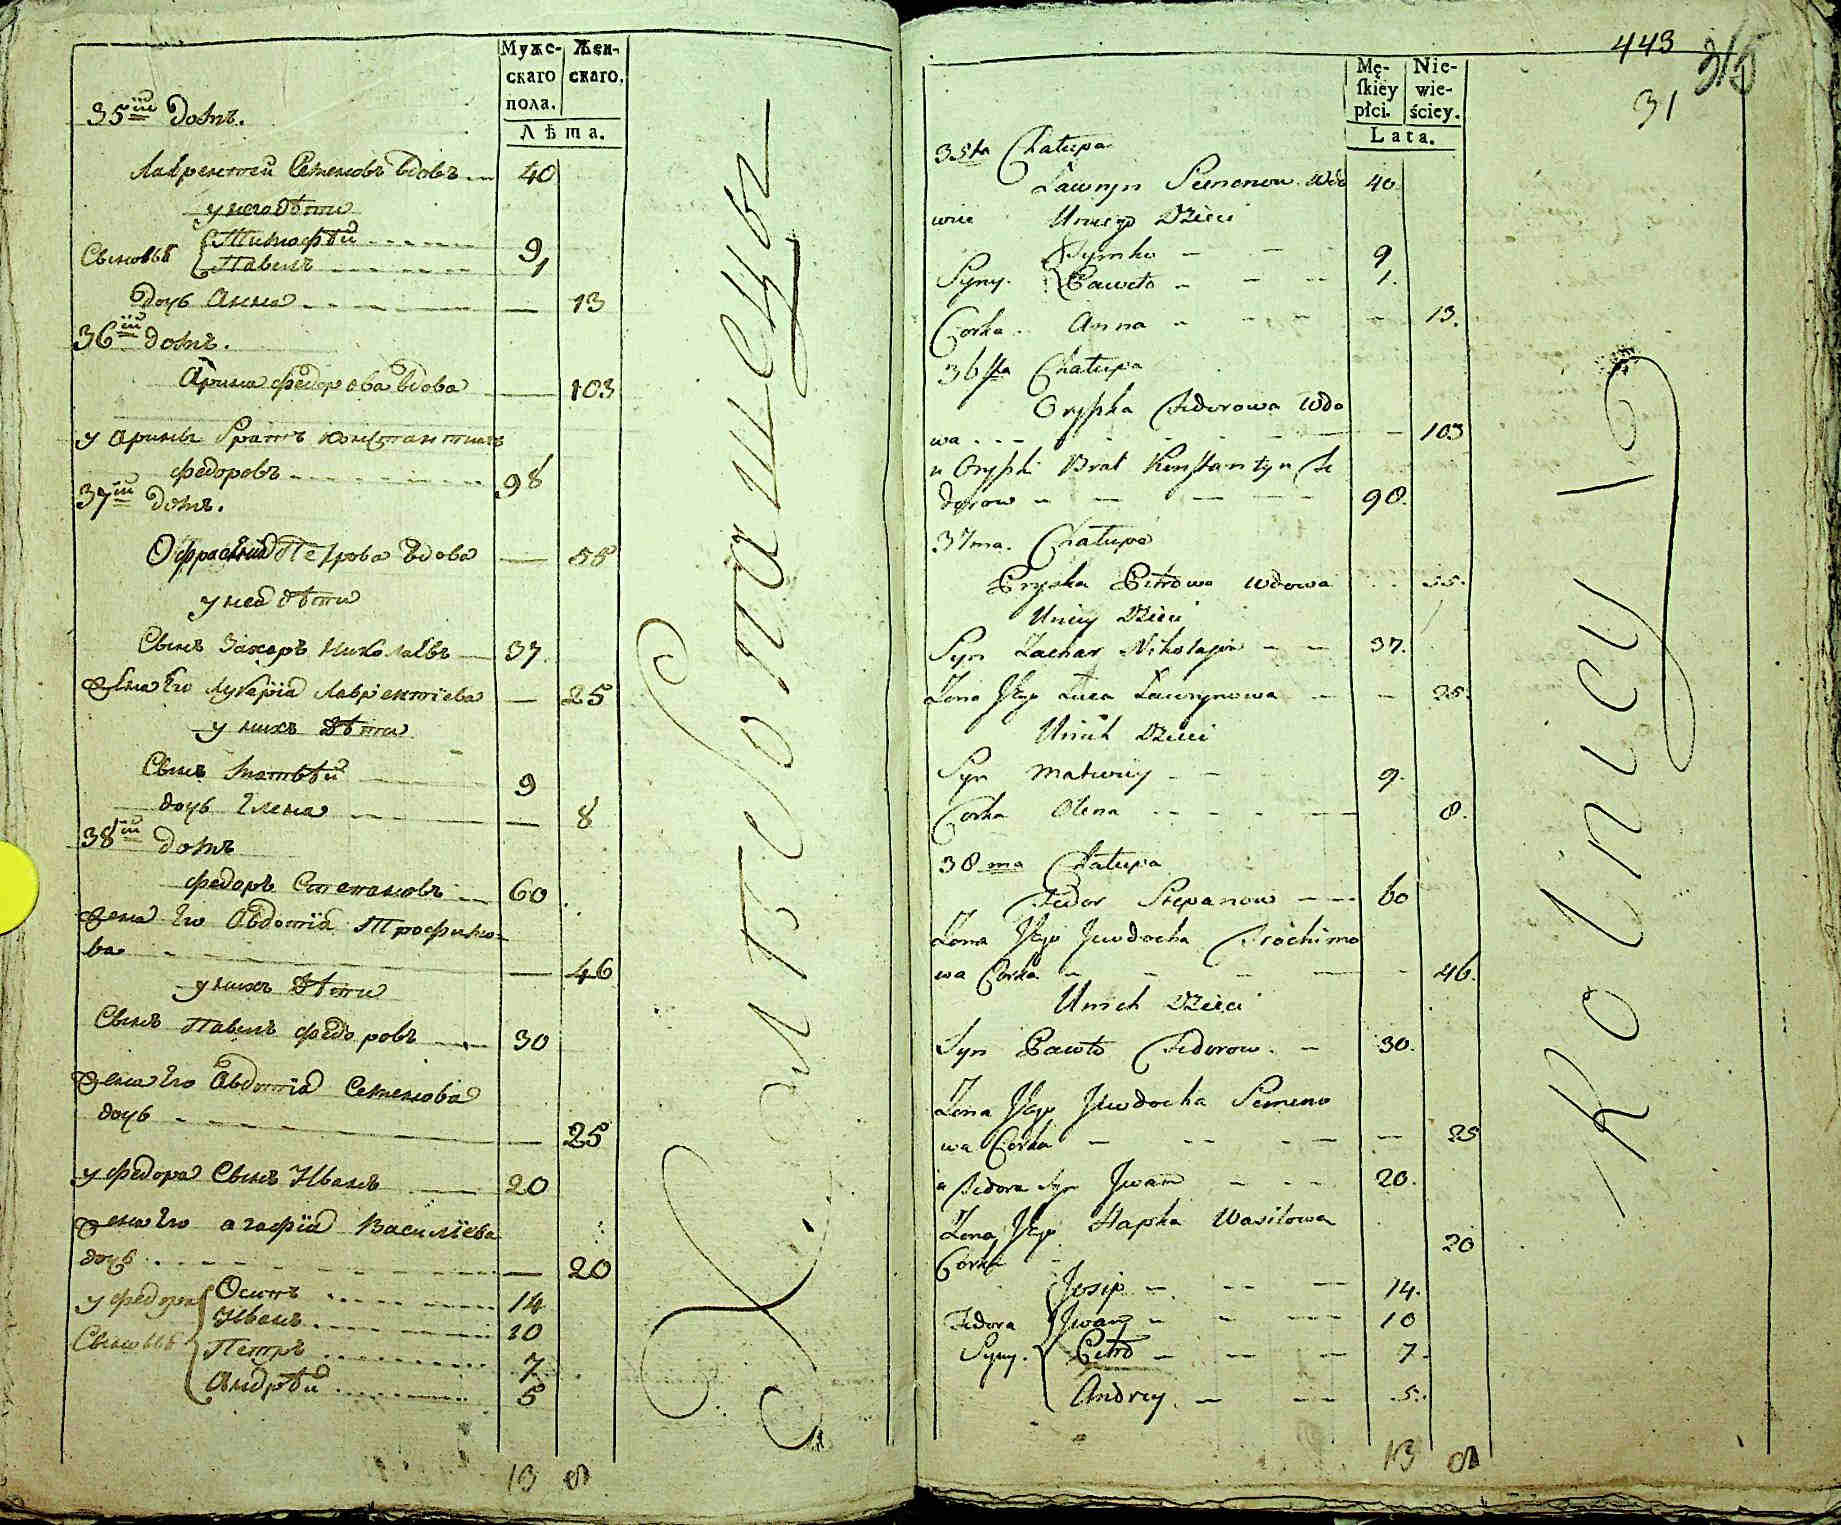 Муже-
скаго
пола.
Жен-
скаго.
Лѣта.
35й домъ.
Лаврентей Семеновъ вдовъ 40
у него дѣти
Сыновья Тимофѣй 9
Павелъ 1
дочь Анна 13
36й домъ.
Арина Федорова вдова 103
у Арины братъ Константинъ
Федоровъ 98
37й домъ.
Офросинiя Петрова вдова 55
у нея дѣти
Сынъ Захаръ Николаевъ 37
Жена Его Лукерiя Лаврентiева 25
у нихъ дѣти
Сынъ Матвѣй 9
дочь Елена 8
38й домъ
Федоръ Степановъ 60
Жена Его Авдотiя Трофимо-
ва 46
у нихъ дѣти
Сынъ Павелъ Федоровъ 30
Жена Его Авдотiя Семенова
дочь 25
у Федора Сынъ Иванъ 20
Жена Его Агафiя Василiева
дочь 20
у Федора Осипъ 14
Иванъ 10
Сыновья Петръ 7
Андрѣй 5
13 8
443
315
31
Mę-
skiey
płci.
Nie-
wie-
ściey.
Lata.
35ta Chałupa
Ławryn Semenow Wdo 40
wiec Uniego Dzieci
Tymko 9
Syny. Pawło 1.
Corka Anna 13.
36sta Chałupa
Oryszka Fedorowa Wdo
wa 103
u Oryszki Brat Konstantyn Fe
dorow 98.
37ma. Chałupa
Pryska Petrowa Wdowa 55.
Uniey Dzieci
Syn Zachar Nikołajew 37.
Zona Jego Łucea Ławrynowa 25.
Unich Dzieci
Syn Matwiy 9.
Corka Olena 8.
38ma Chałupa
Fedor Stepanow 60
Zona Jego Jewdocha Trochimo
wa Corka 46.
Unich Dzieci
Syn Pawło Fedorow. 30.
Zona Jego Jewdocha Semeno
wa Corka 25
u Fedora Syn Jwan 20.
Zona Jego Hapka Wasilowa
Corka 20
Josip 14.
Fedora Jwan 10
Syny. Petro 7.
Andrey 5.
13 8